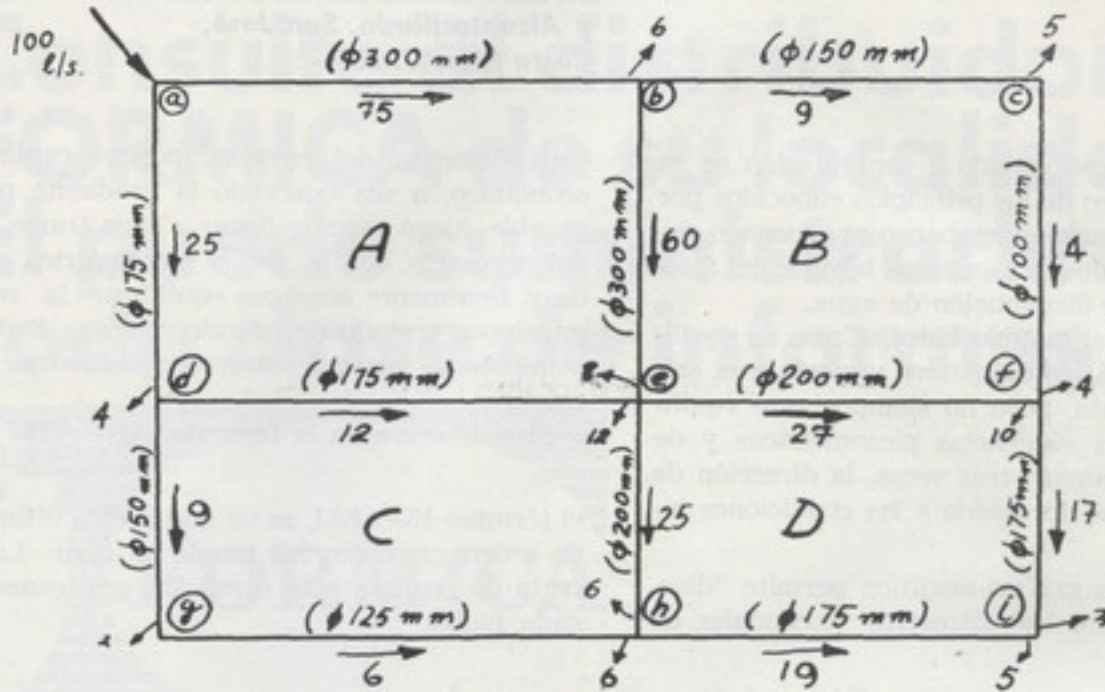 100 l/s.
(φ300 mm)
6
(φ150 mm)
5
a
75
b
9
c
(φ175 mm)
25
A
(φ300 mm)
60
B
(φ100 mm)
4
d
(φ175 mm)
8
e
(φ200 mm)
f
4
4
12
12
27
10
(φ150 mm)
9
C
(φ200 mm)
25
D
(φ175 mm)
17
g
(φ125 mm)
6
h
(φ175 mm)
i
7
6
6
19
5